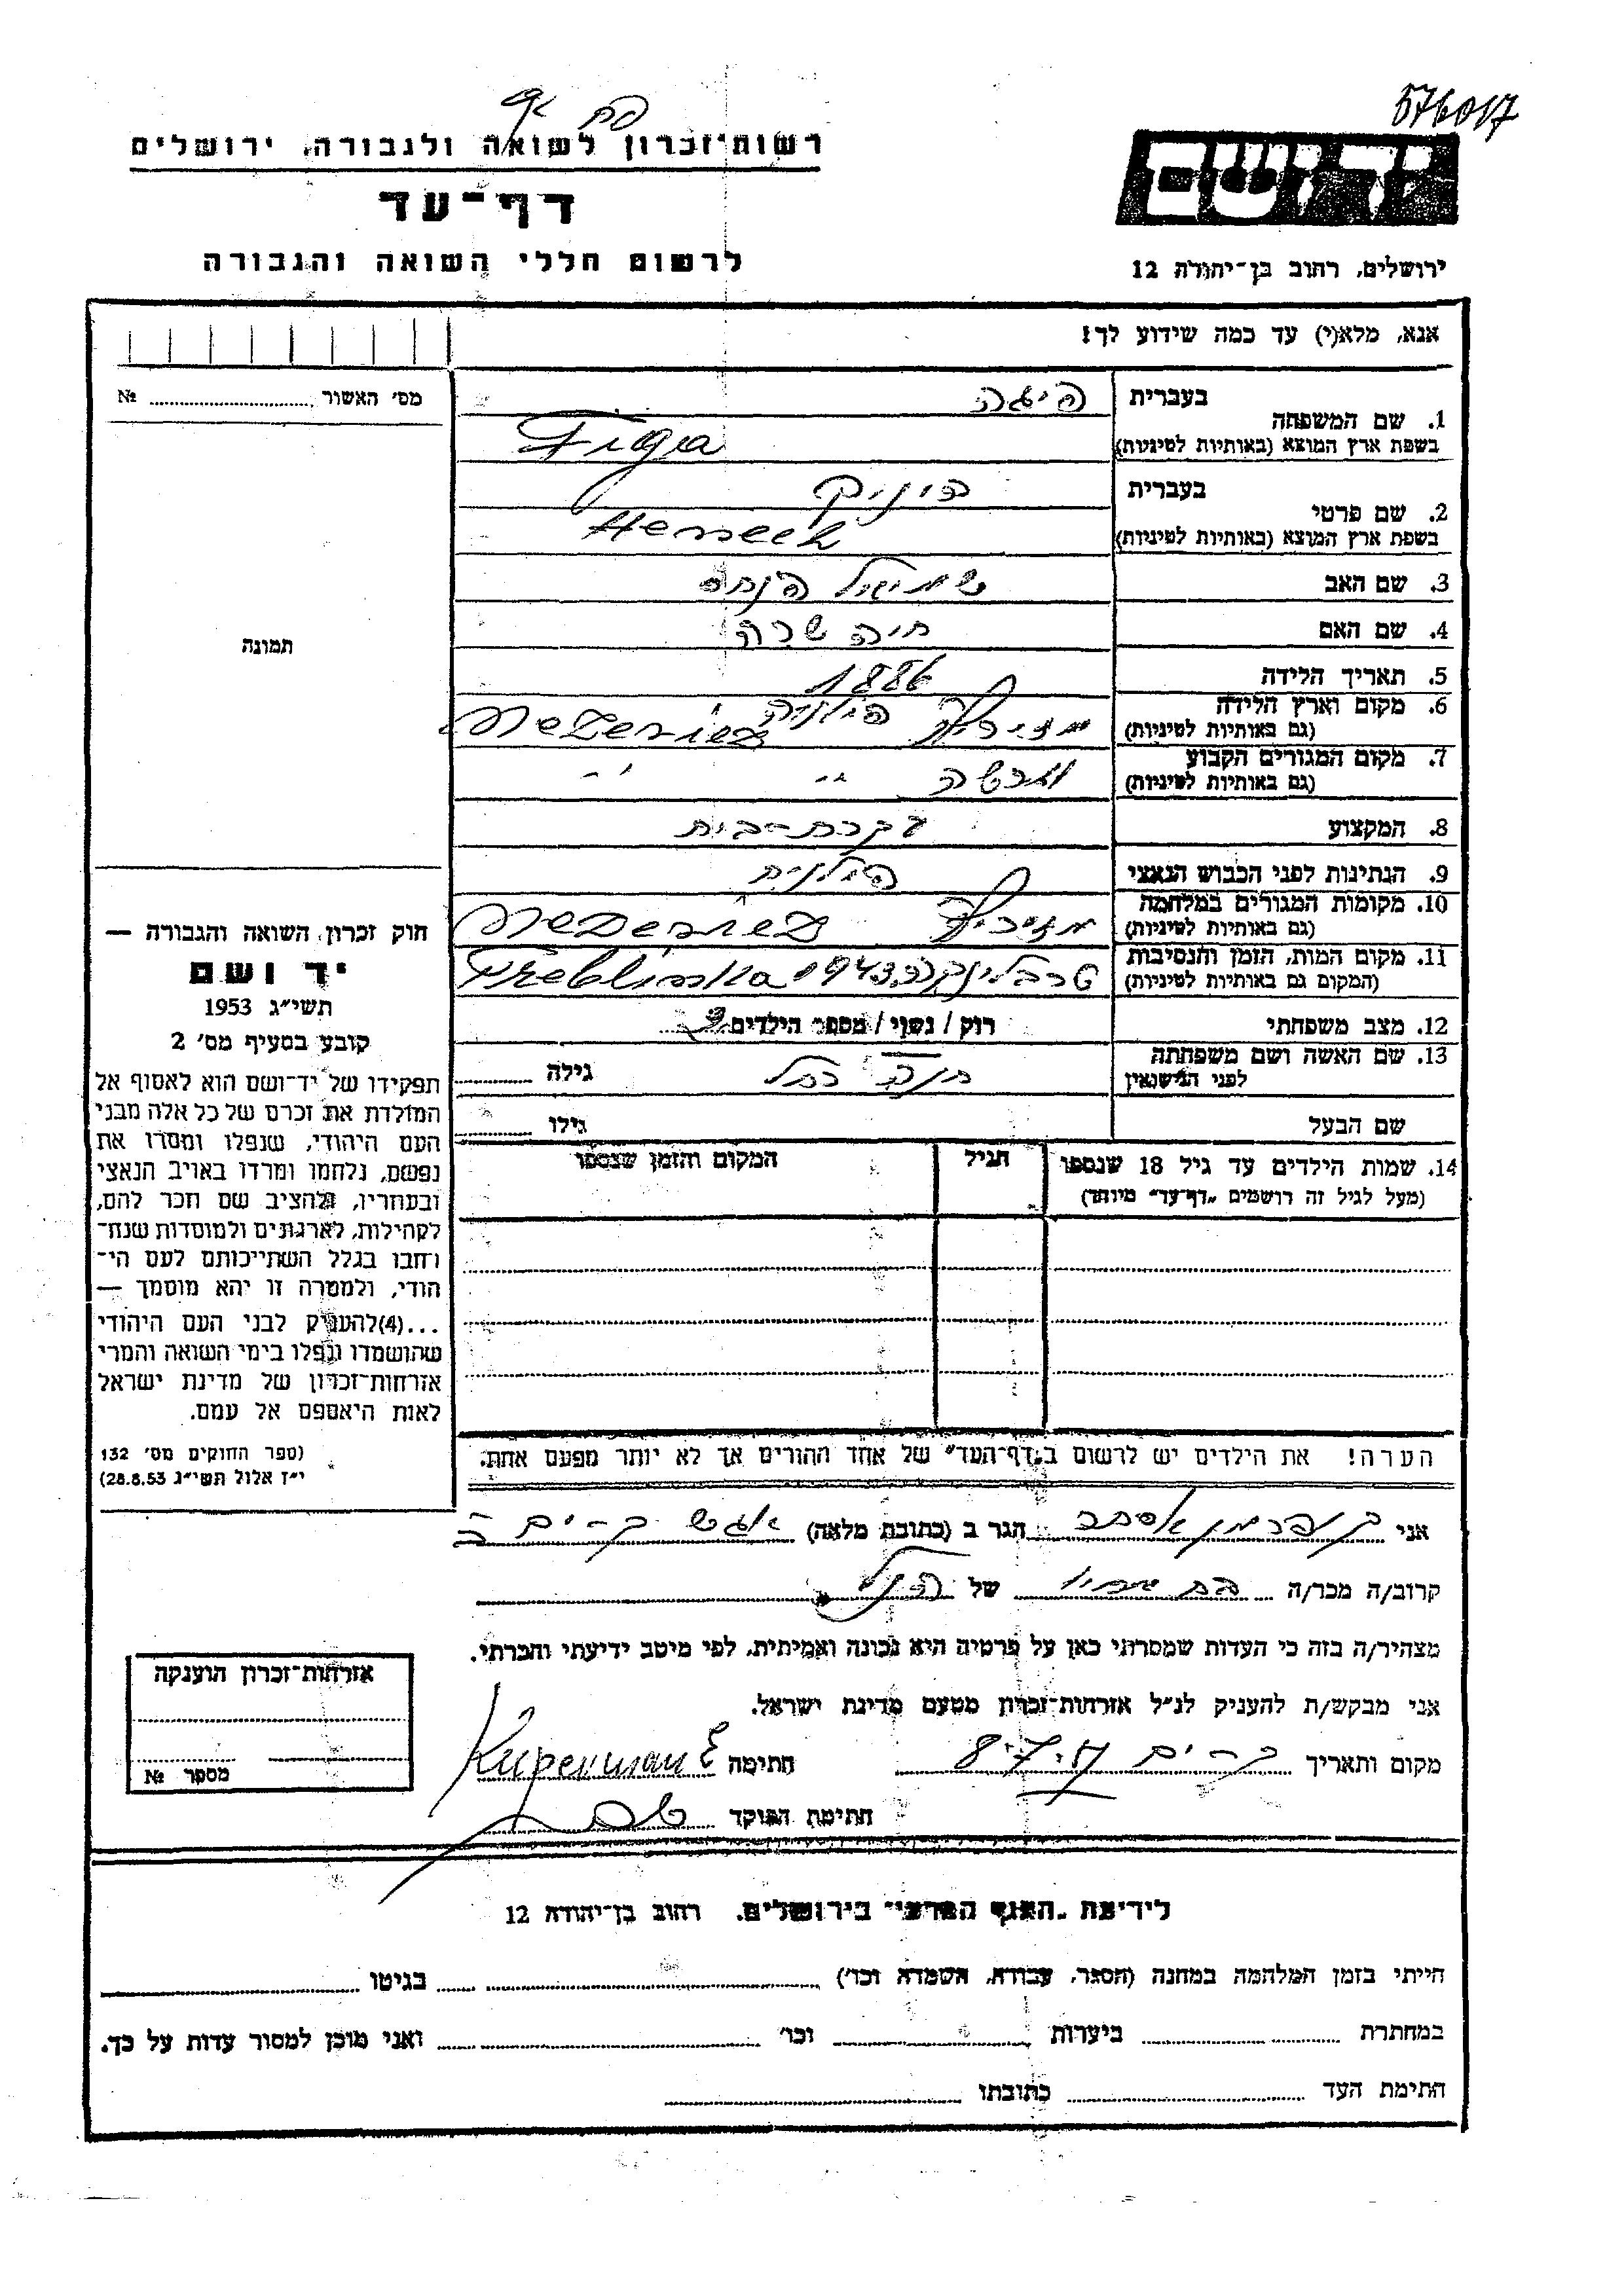 576017
רשות־זכרון לשואה ולגבורה, ירושלים
דף־עד
לרשום חללי השואה והגבורה
יד ושם
ירושלים, רחוב בן־יהודה 12
אנא, מלא(י) עד כמה שידוע לך!
מס׳ האשור № 
1. שם המשפחה
בעברית פיגה
בשפת ארץ המוצא (באותיות לטיניות) Figa
2. שם פרטי
בעברית
בשפת ארץ המוצא (באותיות לטיניות)
3. שם האב שמואל
4. שם האם חיה שרה
5. תאריך הלידה 1886
6. מקום וארץ הלידה פולניה
(גם באותיות לטיניות)
7. מקום המגורים הקבוע
(גם באותיות לטיניות)
8. המקצוע עקרת-בית
9. הנתינות לפני הכבוש הנאצי פולנית
10. מקומות המגורים במלחמה
(גם באותיות לטיניות)
11. מקום המות, הזמן והנסיבות טרבלינקה 1943 Treblinka
(המקום גם באותיות לטיניות)
12. מצב משפחתי רוק / נשוי / מספר הילדים
13. שם האשה ושם משפחתה חנה גילה
לפני הנישואין
שם הבעל גילו
14. שמות הילדים עד גיל 18 שנספו הגיל המקום והזמן שנספו
(מעל לגיל זה רושמים „דף־עד״ מיוחד)
הערה! את הילדים יש לרשום ב„דף־העד״ של אחד ההורים אך לא יותר מפעם אחת.
תמונה
חוק זכרון השואה והגבורה —
יד ושם
תשי״ג 1953
קובע בסעיף מס׳ 2
תפקידו של יד־ושם הוא לאסוף אל
המולדת את זכרם של כל אלה מבני
העם היהודי, שנפלו ומסרו את
נפשם, נלחמו ומרדו באויב הנאצי
ובעוזריו, ולהציב שם וזכר להם,
לקהילות, לארגונים ולמוסדות שנח־
רבו בגלל השתייכותם לעם הי־
הודי, ולמטרה זו יהא מוסמך —
...(4)להעניק לבני העם היהודי
שהושמדו ונפלו בימי השואה והמרי
אזרחות־זכרון של מדינת ישראל
לאות היאספם אל עמם.
(ספר החוקים מס׳ 132
י״ז אלול תשי״ג 28.8.53)
אני קופרמן אסתר הגר ב (כתובת מלאה)
קרוב/ה מכר/ה של הנ״ל
מצהיר/ה בזה כי העדות שמסרתי כאן על פרטיה היא נכונה ואמיתית, לפי מיטב ידיעתי והכרתי.
אני מבקש/ת להעניק לנ״ל אזרחות־זכרון מטעם מדינת ישראל.
מקום ותאריך חתימה Kuperman E
חתימת הפוקד
אזרחות־זכרון הוענקה
מספר №
לידיעת „האגף הפרטי״ בירושלים, רחוב בן־יהודה 12
הייתי בזמן המלחמה במחנה (הסגר, עבודה, השמדה וכו׳) בגיטו
במחתרת ביערות וכו׳ ואני מוכן למסור עדות על כך.
חתימת העד כתובתו